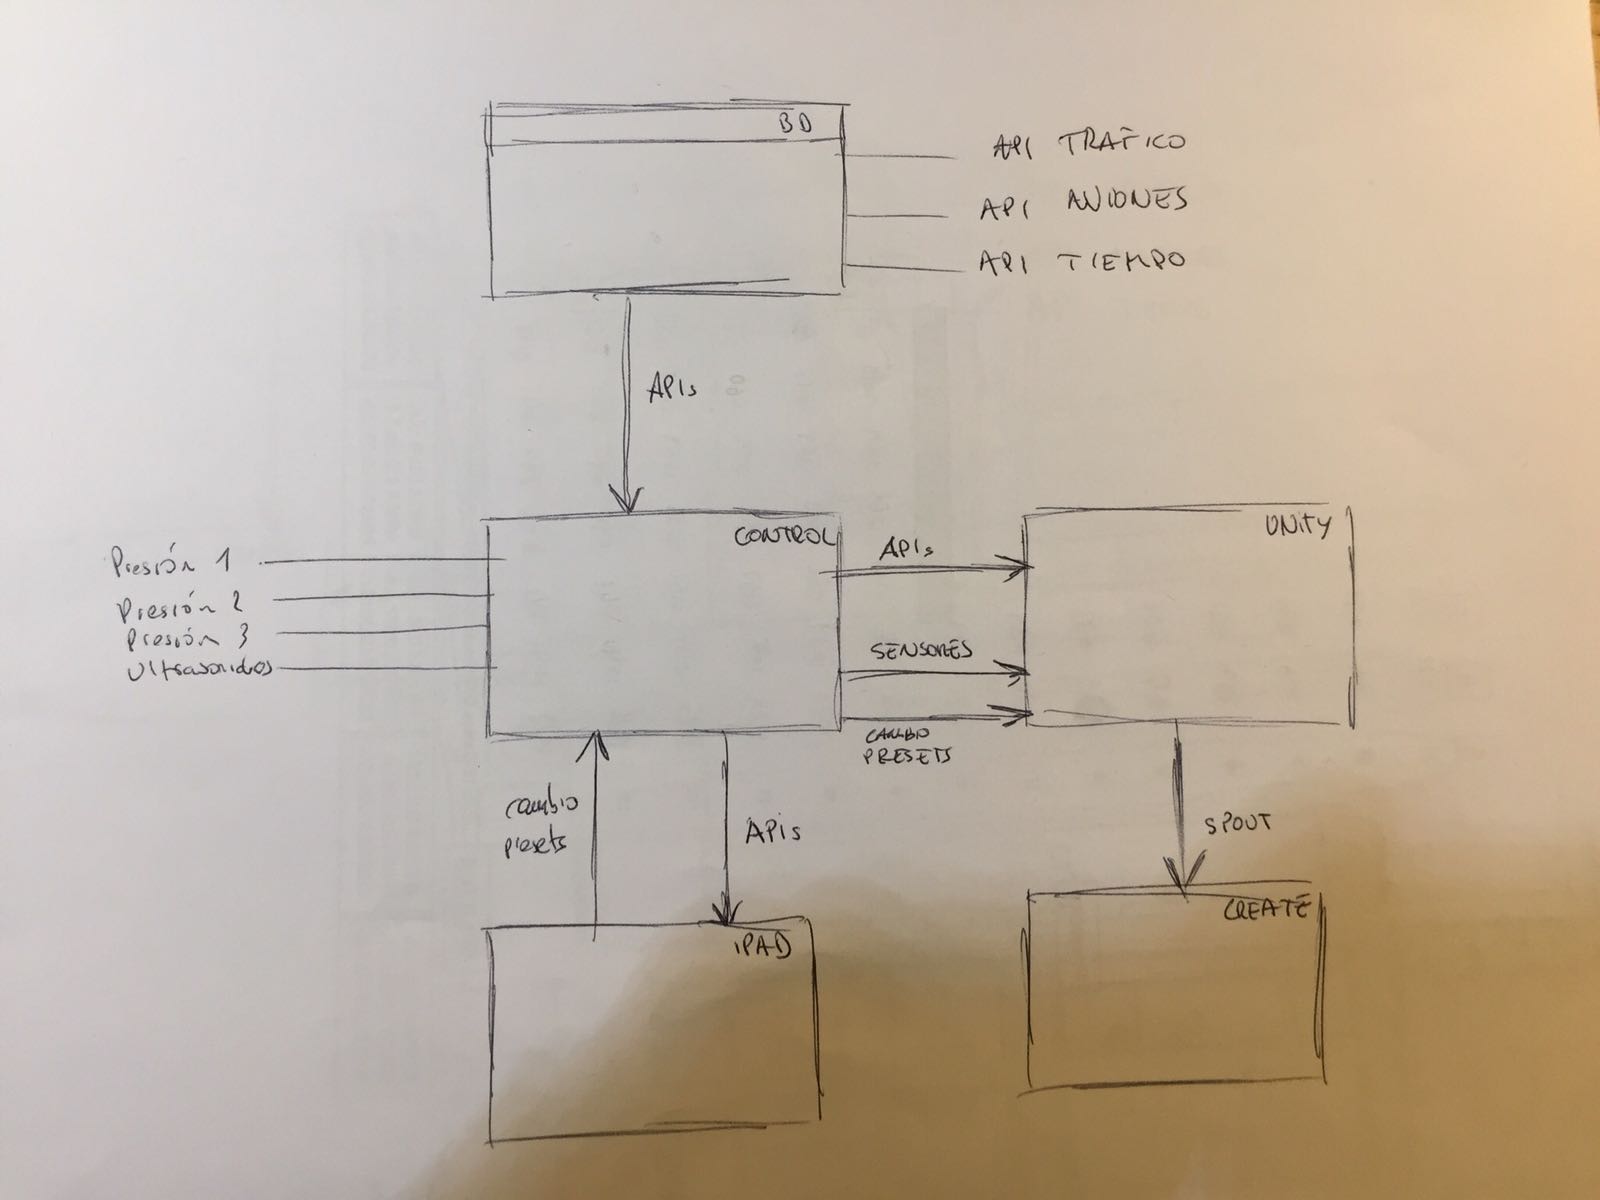 BD
API TRAFICO
API AVIONES
API TIEMPO
APIs
CONTROL
Presión 1
Presión 2
Presión 3
Ultrasonidos
APIs
SENSORES
CAMBIO
PRESETS
UNITY
cambio
presets
APIs
SPOUT
IPAD
CREATE